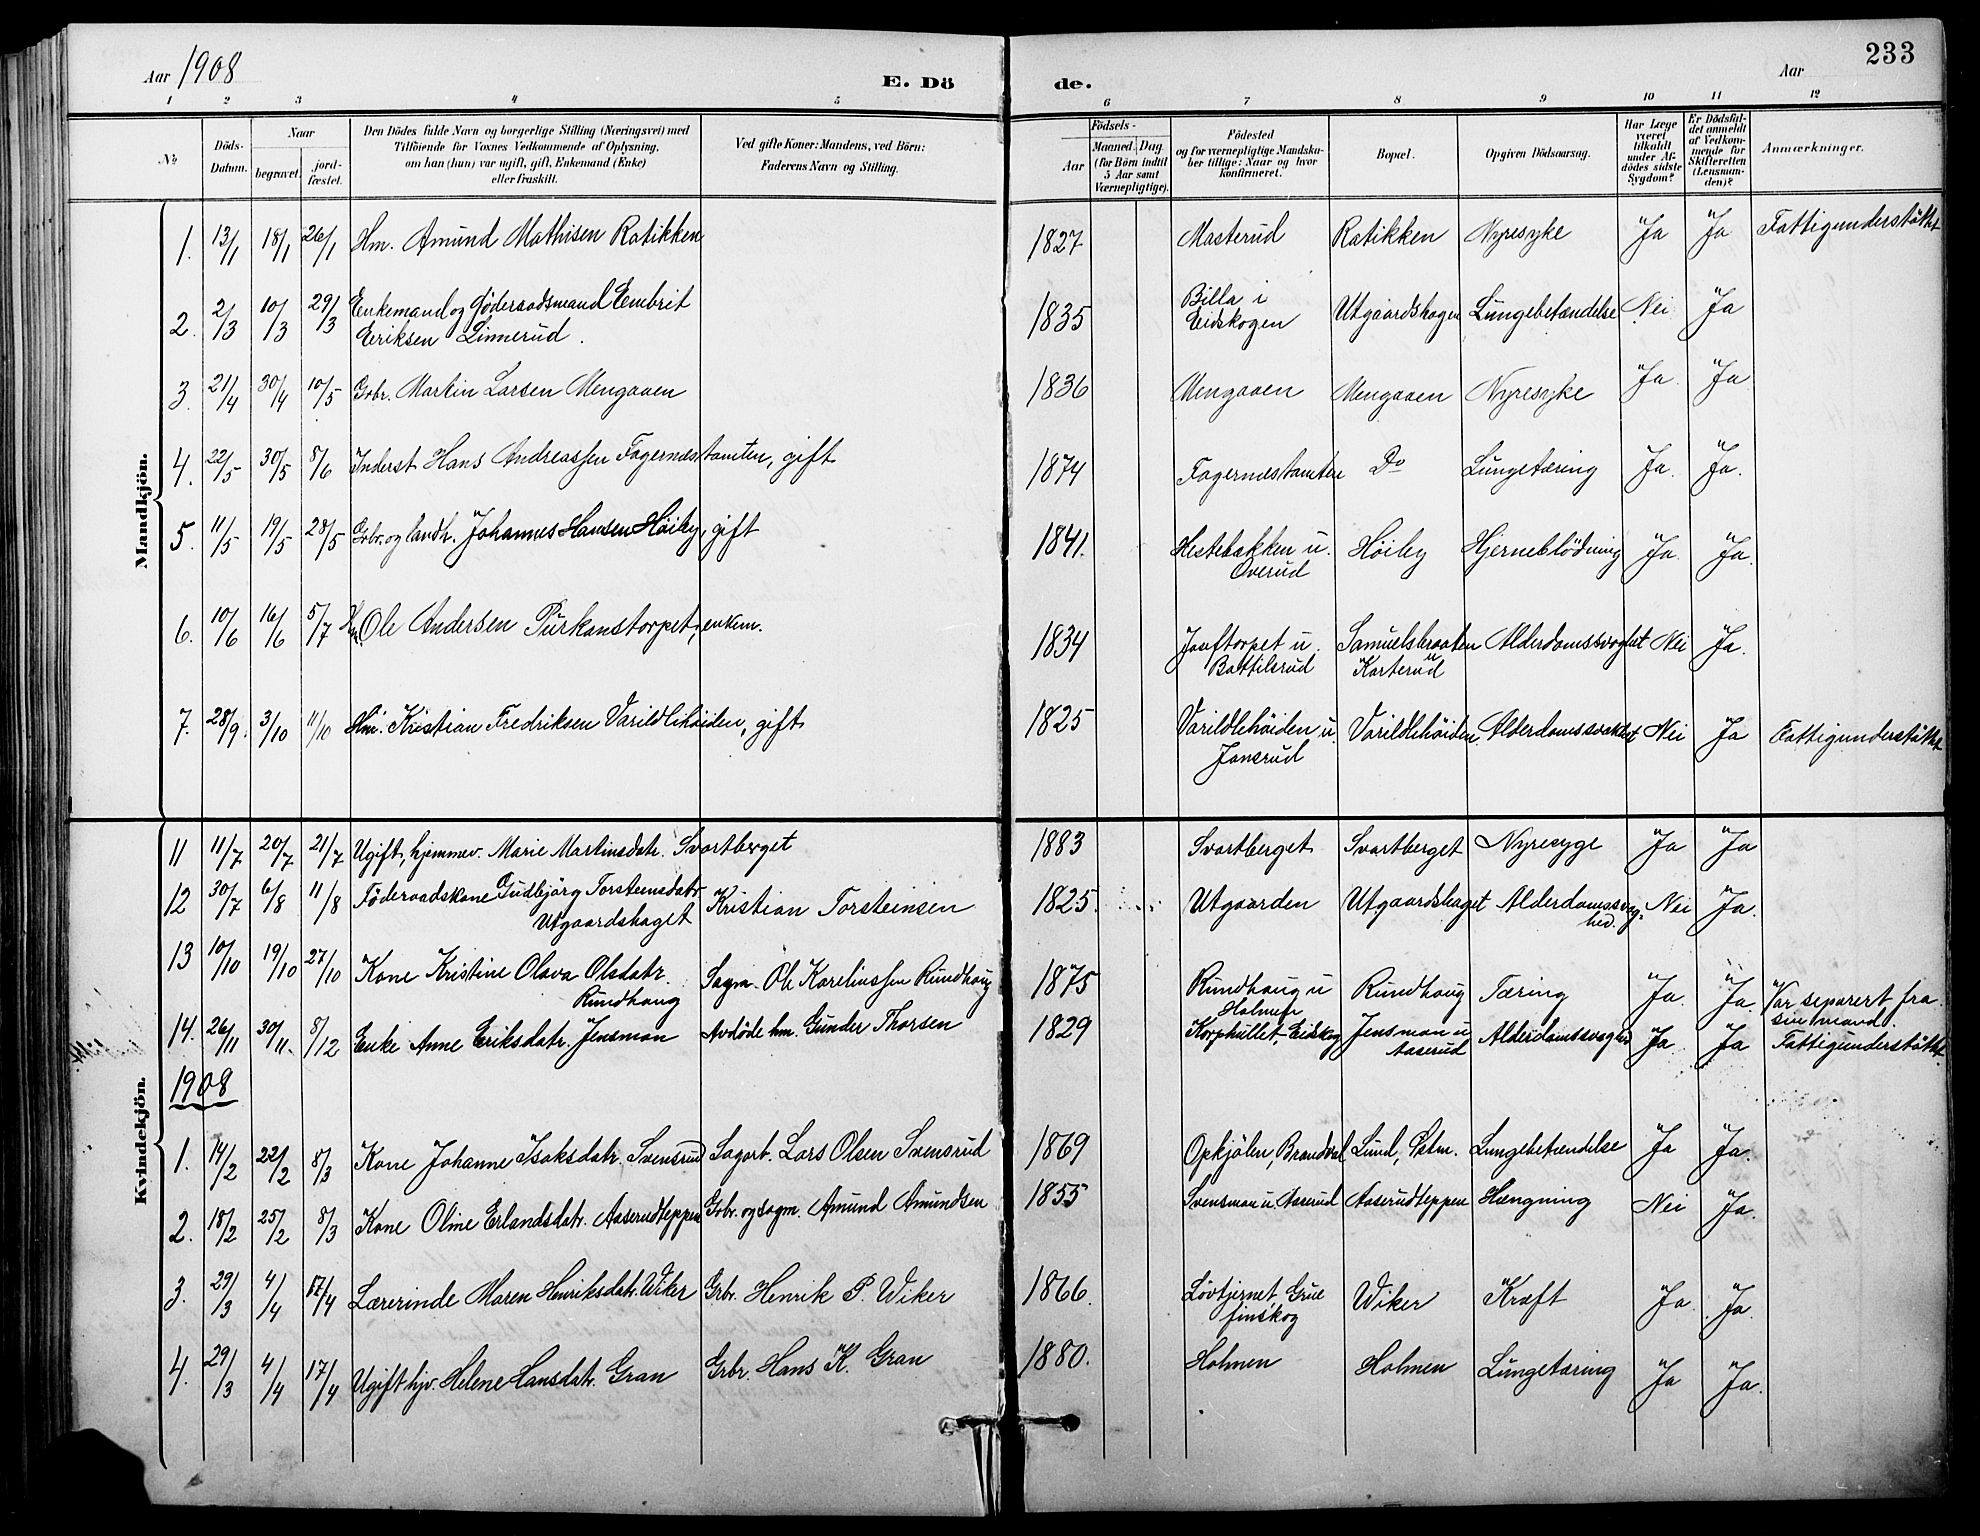 Aar 1908
E. Dö
de.
Aar
233
1 2 3 4 5 6 7 8 9 10 11 12
No
Döds-Datum.
Naar
begravet.
jord-fæstet.
Den Dödes fulde Navn og borgerlige Stilling (Næringsvei) med
Tilföiende for Voxnes Vedkommende af Oplysning,
om han (hun) var ugift, gift, Enkemand (Enke)
eller fraskilt.
Ved gifte Koner: Mandens, ved Börn:
Faderens Navn og Stilling.
Födsels-
Aar
Maaned. Dag
(for Börn indtil
5 Aar samt
Værnepligtige).
Födested
og for værnepligtige Mandska-
ber tillige: Naar og hvor
Konfirmeret.
Bopæl.
Opgiven Dödsaarsag.
Har Læge
været
tilkaldt
under Af-
dödes sidste
Sygdom?
Er Dödsfal-
det anmeldt
af Vedkom-
mende for
Skifteretten
(Lensman-
den)?
Anmærkninger.
Mandkjön.
1. 13/1 18/1 26/1 Hm. Amund Mathisen Ratikken 1827 Masterud Ratikken Nyresyke Ja Ja Fattigunderstøttet
2. 2/3 10/3 29/3 Enkemand og föderaadsmand Embrit
Eriksen Linnerud. 1835 Billa i
Eidskogen Utgaardshagen Lungebetændelse Nei Ja
3. 21/4 30/4 10/5 Gbr. Martin Larsen Mengaaen 1836 Mengaaen Mengaaen Nyresyke Ja. Ja
4. 22/5 30/5 8/6 Inderst Hans Andreassen Fagernæstomten, gift 1874 Fagernæstomten Do Lungetæring Ja. Ja.
5. 11/5 19/5 28/5 Gbr. og landh. Johannes Hansen Höiby, gift 1841. Hestebakken u.
Overud Höiby Hjerneblödning Ja. Ja.
6. 10/6 16/6 5/7 Hm. Ole Andersen Purkanstorpet, enkem. 1834 Joseftorpet u.
Battilsrud Samuelsbraaten
u Karterud Alderdomssvaghet Nei Ja.
7. 28/9. 3/10 11/10 Hm. Kristian Fredriksen Varildlihöiden, gift 1825 Varildlihöiden u.
Jansrud Varildlihöiden. Alderdomssvakhet Nei Ja Fattigunderstøttet
Kvindekjön.
11 11/7 20/7 21/7 Ugift, hjemmev. Marie Martinsdatr. Svartberget 1883 Svartberget Svartberget Nyresyge Ja Ja
12 30/7 6/8 11/8 Föderaadskone Gudbjörg Torsteinsdatr
Utgaardshaget Kristian Torsteinsen 1825. Utgaarden Utgaardshaget Alderdomssvag-
hed. Nei Ja.
13 10/10 19/10 27/10 Kone Kristine Olava Olsdatr.
Rundhaug Sagm. Ole Karelinssen Rundhaug 1875 Rundhaug u
Holmen Rundhaug Tæring Ja. Ja. Var separert fra
sin mand.
14. 26/11 30/11. 8/12 Enke Anne Eriksdatr. Jensmon Avdöde hm. Gunder Thorsen 1829 Korphullet, Eidskog Jensmon u
Aaserud Alderdomssvaghed Ja Ja Fattigunderstøttet
1908
1. 14/2 22/2 8/3 Kone Johanne Isaksdatr. Svensrud Sagarb. Lars Olsen Svensrud 1869 Opkjölen, Brandval Lund, Sstm. Lungebetændelse Ja Ja.
2. 18/2 25/2 8/3 Kone Oline Erlandsdatr. Aaserudteppen Gbr. og sagm. Amund Amundsen 1855 Svensmon u. Aaserud Aaserudteppen Hængning Nei Ja.
3. 29/3 4/4 17/4 Lærerinde Maren Henriksdatr. Wiker Grbr. Henrik P. Wiker 1866. Lövtjernet Grue
finskog Wiker Kræft Ja. Ja.
4. 29/3 4/4 17/4 Ugift hjv. Helene Hansdatr. Gran Grbr. Hans K. Gran 1880. Holmen Holmen Lungetæring Ja Ja.